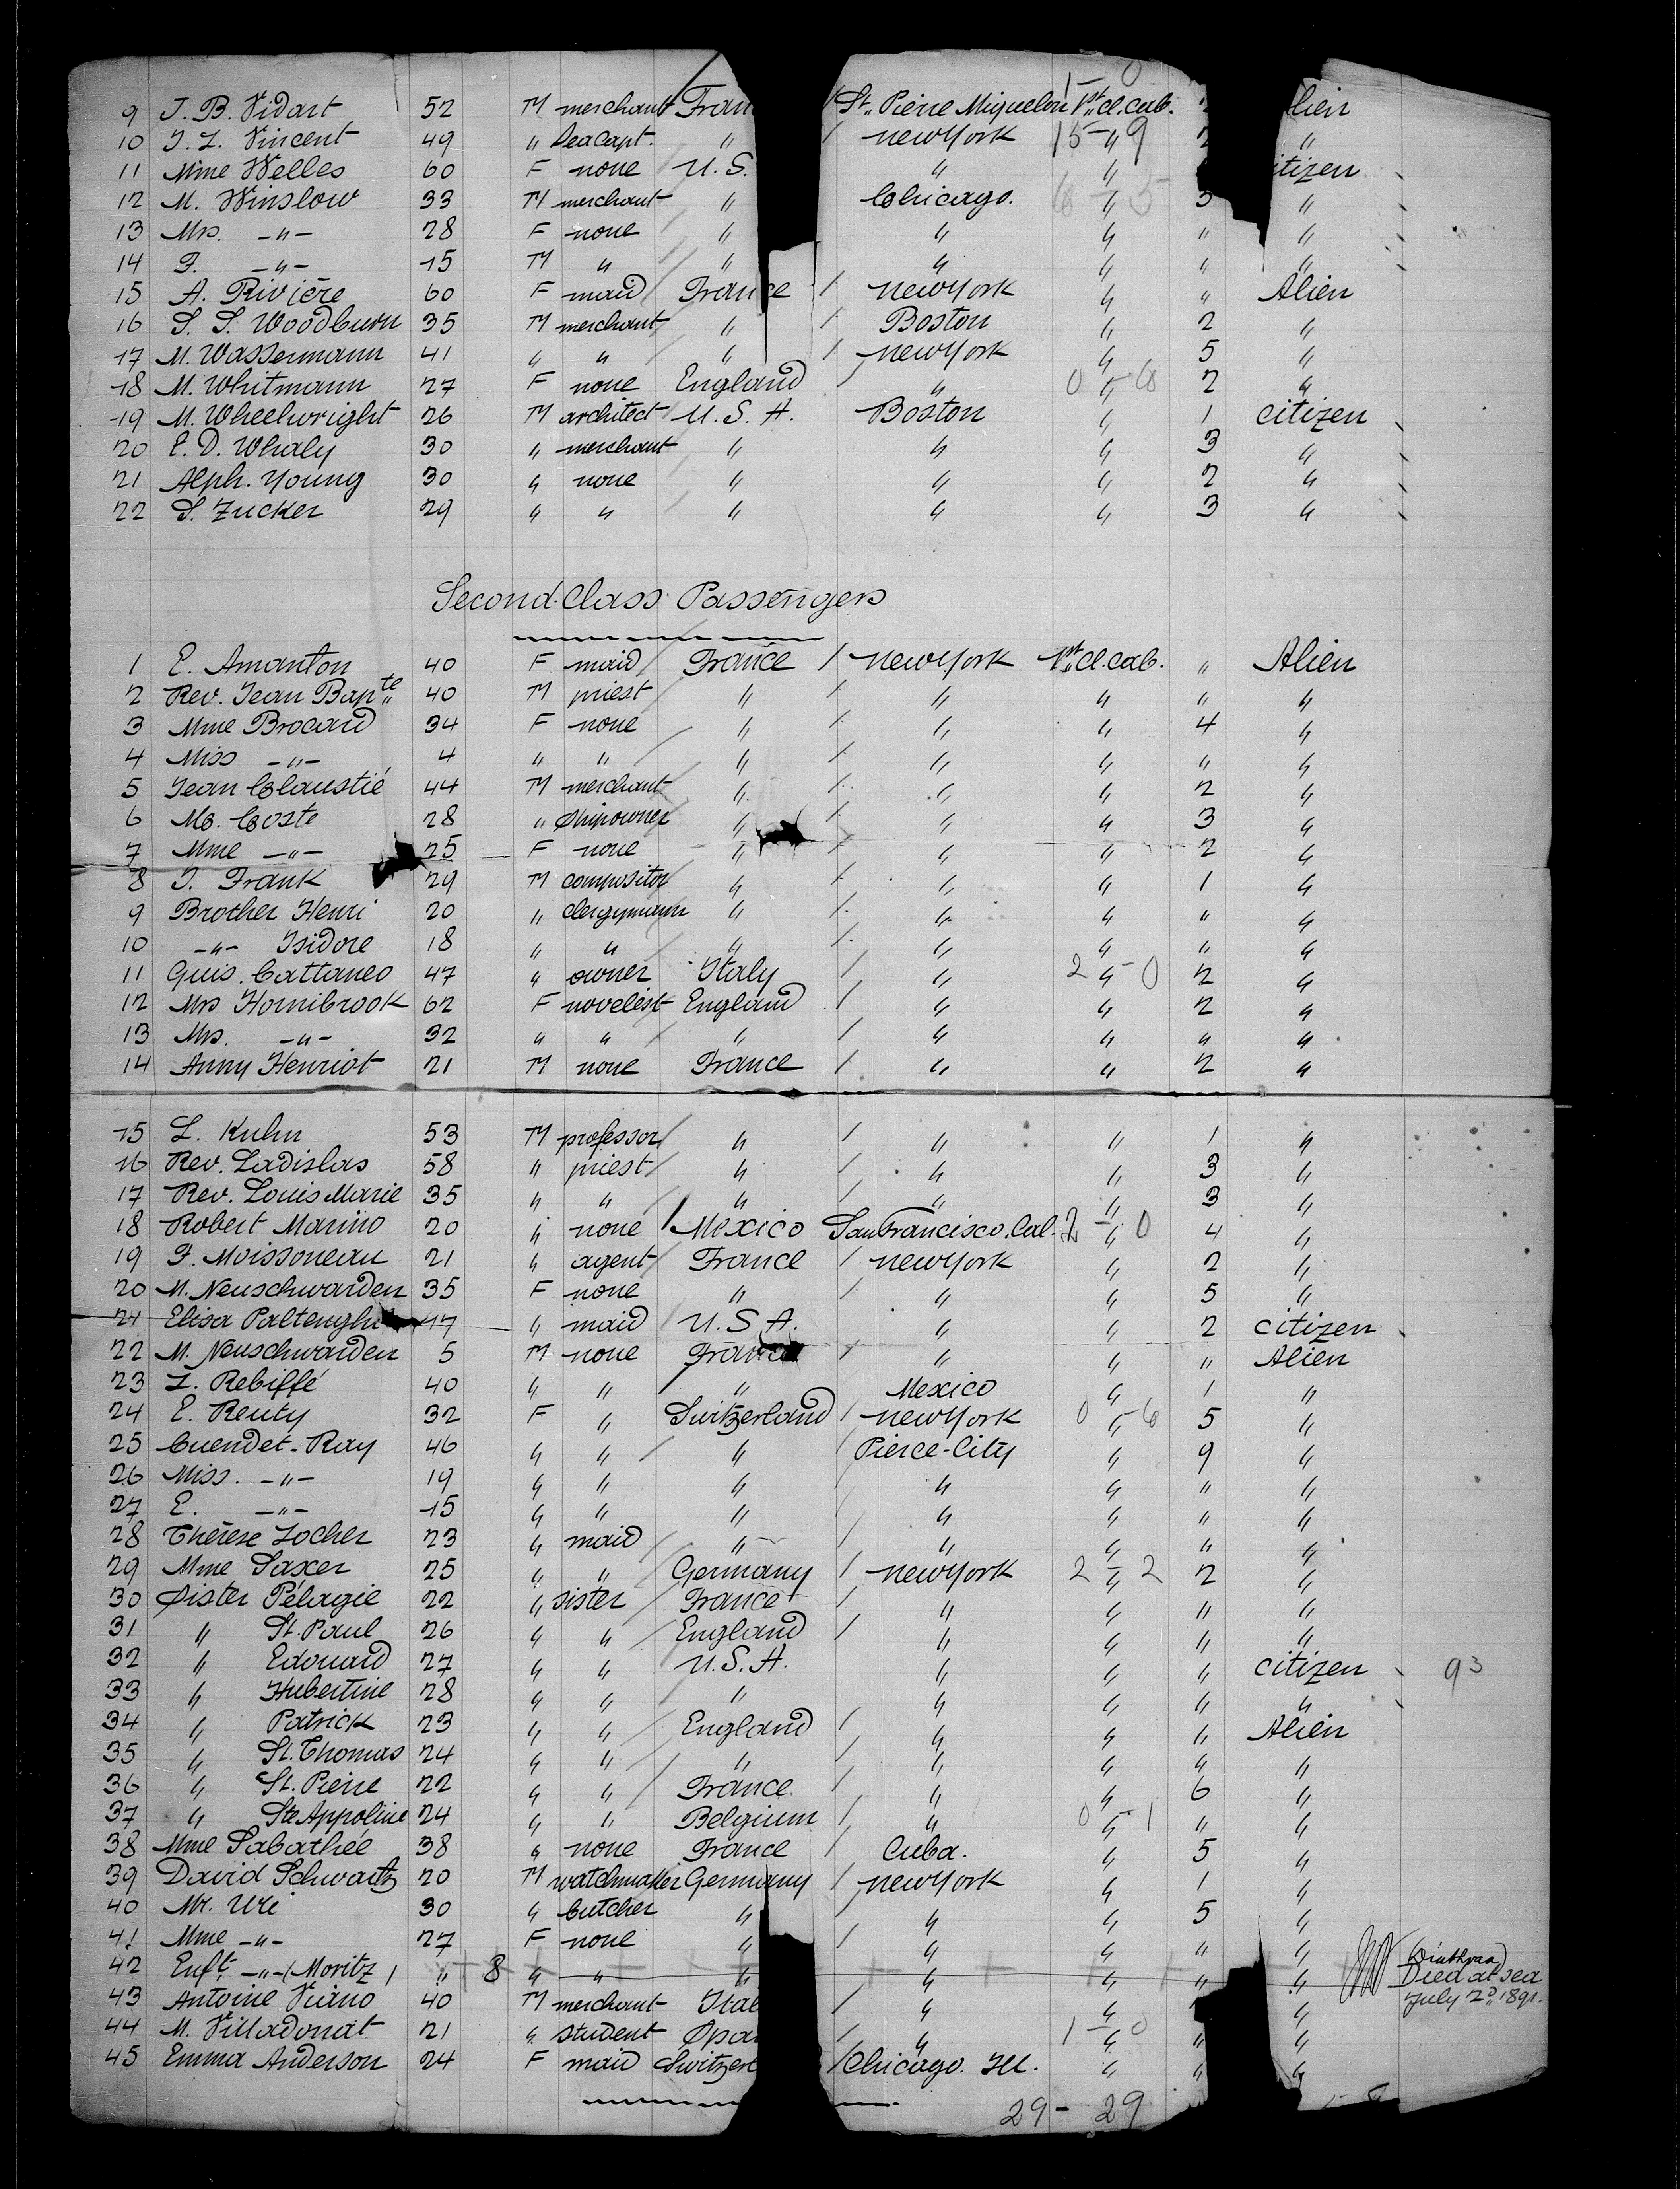 9 J. B. Vidart 52 M merchant Fran / St. Pierre Miquelon 1st cl. cab. lien
10 J. L. Vincent 49 " Seacapt. " / newyork 15 " 9 2 "
11 Mme Welles 60 F none U. S. " " itizen
12 M. Winslow 33 M merchant " Chicago. 6 " 5 3 "
13 Mrs. -"- 28 F none " " " " "
14 F. -"- 15 M " " " " " "
15 A. Rivière 60 F maid France / newyork " " Alien
16 S. S. Woodburn 35 M merchant " / Boston " 2 "
17 M. Wassermann 41 " " " / newyork " 5 "
18 M. Whitmann 27 F none England / " 0 " 6 2 "
19 M. Wheelwright 26 M architect U. S. A. Boston " 1 citizen
20 E. D. Whaly 30 " merchant " " " 3 "
21 Alph. Young 30 " none " " " 2 "
22 S. Zucker 29 " " " " " 3 "
Second-Class Passengers
1 E. Amanton 40 F maid France / newyork 1st cl. cab. " Alien
2 Rev. Jean Bapte 40 M priest " / " " " "
3 Mme Brocard 34 F none " / " " 4 "
4 Miss -"- 4 " " " / " " " "
5 Jean Claustié 44 M merchant " / " " 2 "
6 Mr. Coste 28 " Shipowner " / " " 3 "
7 Mme -"- 25 F none " / " " 2 "
8 J. Frank 29 M compositor " / " " 1 "
9 Brother Henri 20 " clergymann " / " " " "
10 -"- Isidore 18 " " " / " " " "
11 Guis. Cattaneo 47 " owner Italy / " 2 " 0 2 "
12 Mrs Hornibrook 62 F novelist England / " " 2 "
13 Mrs. -"- 32 " " " / " " " "
14 Anny Henriot 21 M none France / " " 2 "
15 L. Kuhn 53 M professor " / " " 1 "
16 Rev. Ladislas 58 " priest " / " " 3 "
17 Rev. Louis Marie 35 " " " / " " 3 "
18 Robert Marino 20 " none / Mexico San Francisco. Cal. 2 " 0 4 "
19 F. Moissoneau 21 " agent France / newyork " 2 "
20 M. Neuschwarden 35 F none " / " " 5 "
21 Elisa Paltengh 17 " maid U. S A. " " 2 citizen
22 M. Neuschwarden 5 M none France / " " " Alien
23 L. Rebiffé 40 " " " Mexico " 1 "
24 E. Reuty 32 F " Switzerland / newyork 0 " 6 5 "
25 Cuendet-Ray 46 " " " Pierce-City " 9 "
26 Miss. -"- 19 " " " / " " " "
27 E. -"- 15 " " " / " " " "
28 Thérèse Locher 23 " maid " / " " " "
29 Mme Saxer 25 " " Germany / newyork 2 " 2 2 "
30 Sister Pélagie 22 " sister France / " " " "
31 " St. Paul 26 " " England / " " " "
32 " Edouard 27 " " U. S. A. " " " citizen 93
33 " Hubertine 28 " " " " " " "
34 " Patrick 23 " " England / " " " Alien
35 " St. Thomas 24 " " " / " " " "
36 " St. Pierre 22 " " France / " " 6 "
37 " Ste Appoline 24 " " Belgium / " 0 " 1 " "
38 Mme Sabathée 38 " none France / Cuba. " 5 "
39 David Schwartz 20 M watchmaker Germany / newyork " 1 "
40 Mr. Uri 30 " butcher " / " " 5 "
41 Mme -"- 27 F none " / " " " "
42 Enft. -"- (Moritz) " 8 " " " " " " " Died at sea
July 2d 1891.
43 Antoine Viano 40 M merchant Ital / " " "
44 M. Villadonat 21 " student Spa / " 1 " 0 " "
45 Emma Anderson 24 F maid Switzerl / Chicago. Ill. " " "
29 - 29